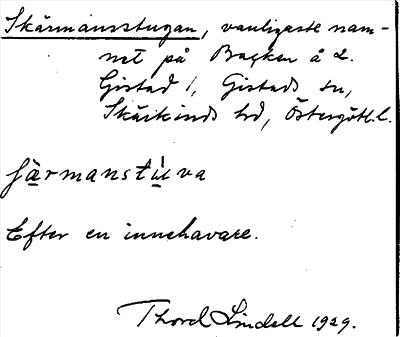 Skärmansstugan, vanligaste nam-
net på Backen å 2.
Gistad 1, Gistads sn,
Skärkinds hd, Östergötl. l.
ʃärmanstúva
Efter en innehavare.
Thord Lindell 1929.